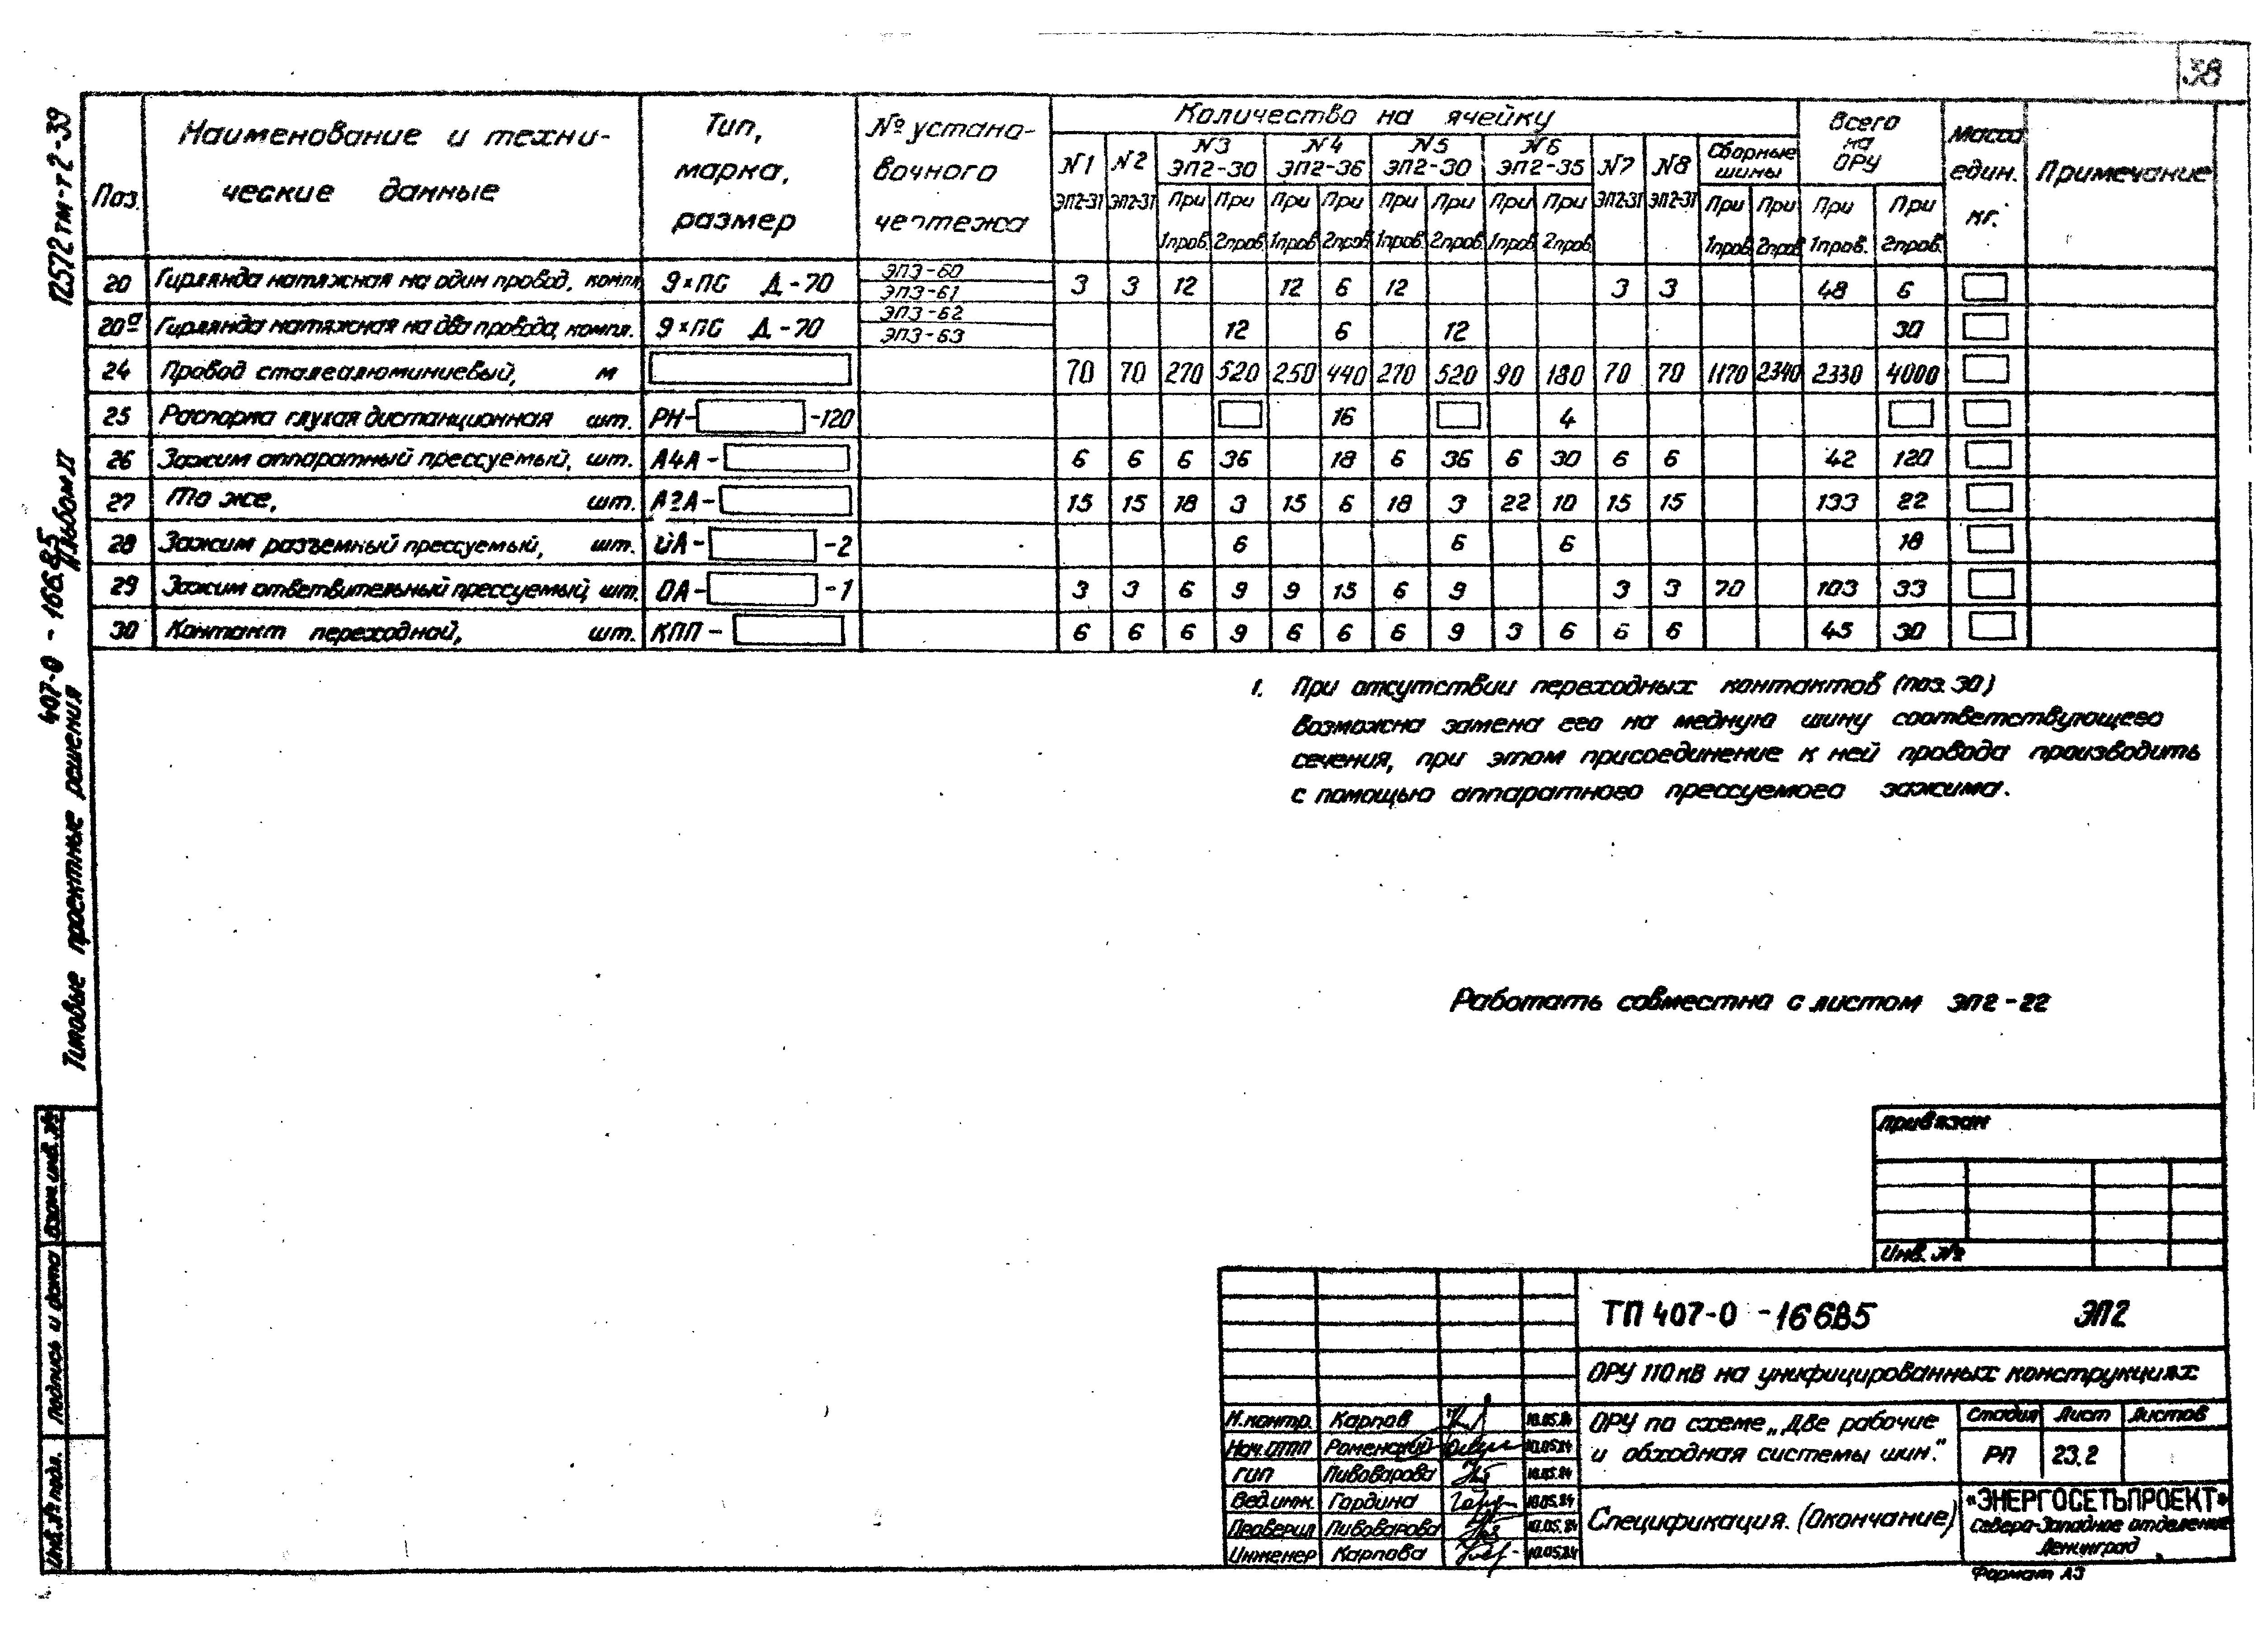 38
12572тм-т2-39
Альбом II
407-0-166.85
Типовые проектные решения
Поз.
Наименование и техни-
ческие данные
Тип,
марка,
размер
№ устано-
вочного
чертежа
Количество на ячейку
N1
ЭП2-31
N2
ЭП2-31
N3
ЭП2-30
N4
ЭП2-36
N5
ЭП2-30
N6
ЭП2-35
N7
ЭП2-31
N8
ЭП2-31
Сборные
шины
Всего
на
ОРУ
Масса
един.
кг.
Примечание
При При При При При При При При При При При При
1пров. 2пров. 1пров. 2пров. 1пров. 2пров. 1пров. 2пров. 1пров. 2пров. 1пров. 2пров.
20 Гирлянда натяжная на один провод, компл. 9×ПС Д-70 ЭП3-60 ЭП3-61 3 3 12 12 6 12 3 3 48 6
20а Гирлянда натяжная на два провода, компл. 9×ПС Д-70 ЭП3-62 ЭП3-63 12 6 12 30
24 Провод сталеалюминиевый, м 70 70 270 520 250 440 270 520 90 180 70 70 1170 2340 2330 4000
25 Распорка глухая дистанционная шт. РН- -120 16 4
26 Зажим аппаратный прессуемый, шт. А4А- 6 6 6 36 18 6 36 6 30 6 6 42 120
27 То же, шт. А2А- 15 15 18 3 15 6 18 3 22 10 15 15 133 22
28 Зажим разъемный прессуемый, шт. -2 6 6 6 18
29 Зажим ответвительный прессуемый, шт. ОА- -1 3 3 6 9 9 15 6 9 3 3 70 103 33
30 Контакт переходной, шт. КПП- 6 6 6 9 6 6 6 9 3 6 6 6 45 30
1. При отсутствии переходных контактов (поз. 30)
возможна замена его на медную шину соответствующего
сечения, при этом присоединение к ней провода производить
с помощью аппаратного прессуемого зажима.
Работать совместна с листом ЭП2-22
Привязан
Инв. №
Взам. инв. №
Подпись и дата
Инв. № подл.
ТП 407-0-166.85 ЭП2
ОРУ 110кВ на унифицированных конструкциях
Н.контр. Карпов 10.05.84
Нач. ОТПП Роменский 10.05.84
ГИП Пивоварова 10.05.84
Вед.инж. Гордина 10.05.84
Проверил Пивоварова 10.05.84
Инженер Карпова 10.05.84
ОРУ по схеме „Две рабочие
и обходная системы шин."
Стадия Лист Листов
РП 23.2
Спецификация. (Окончание)
«ЭНЕРГОСЕТЬПРОЕКТ»
Северо-Западное отделение
Ленинград
Формат А3